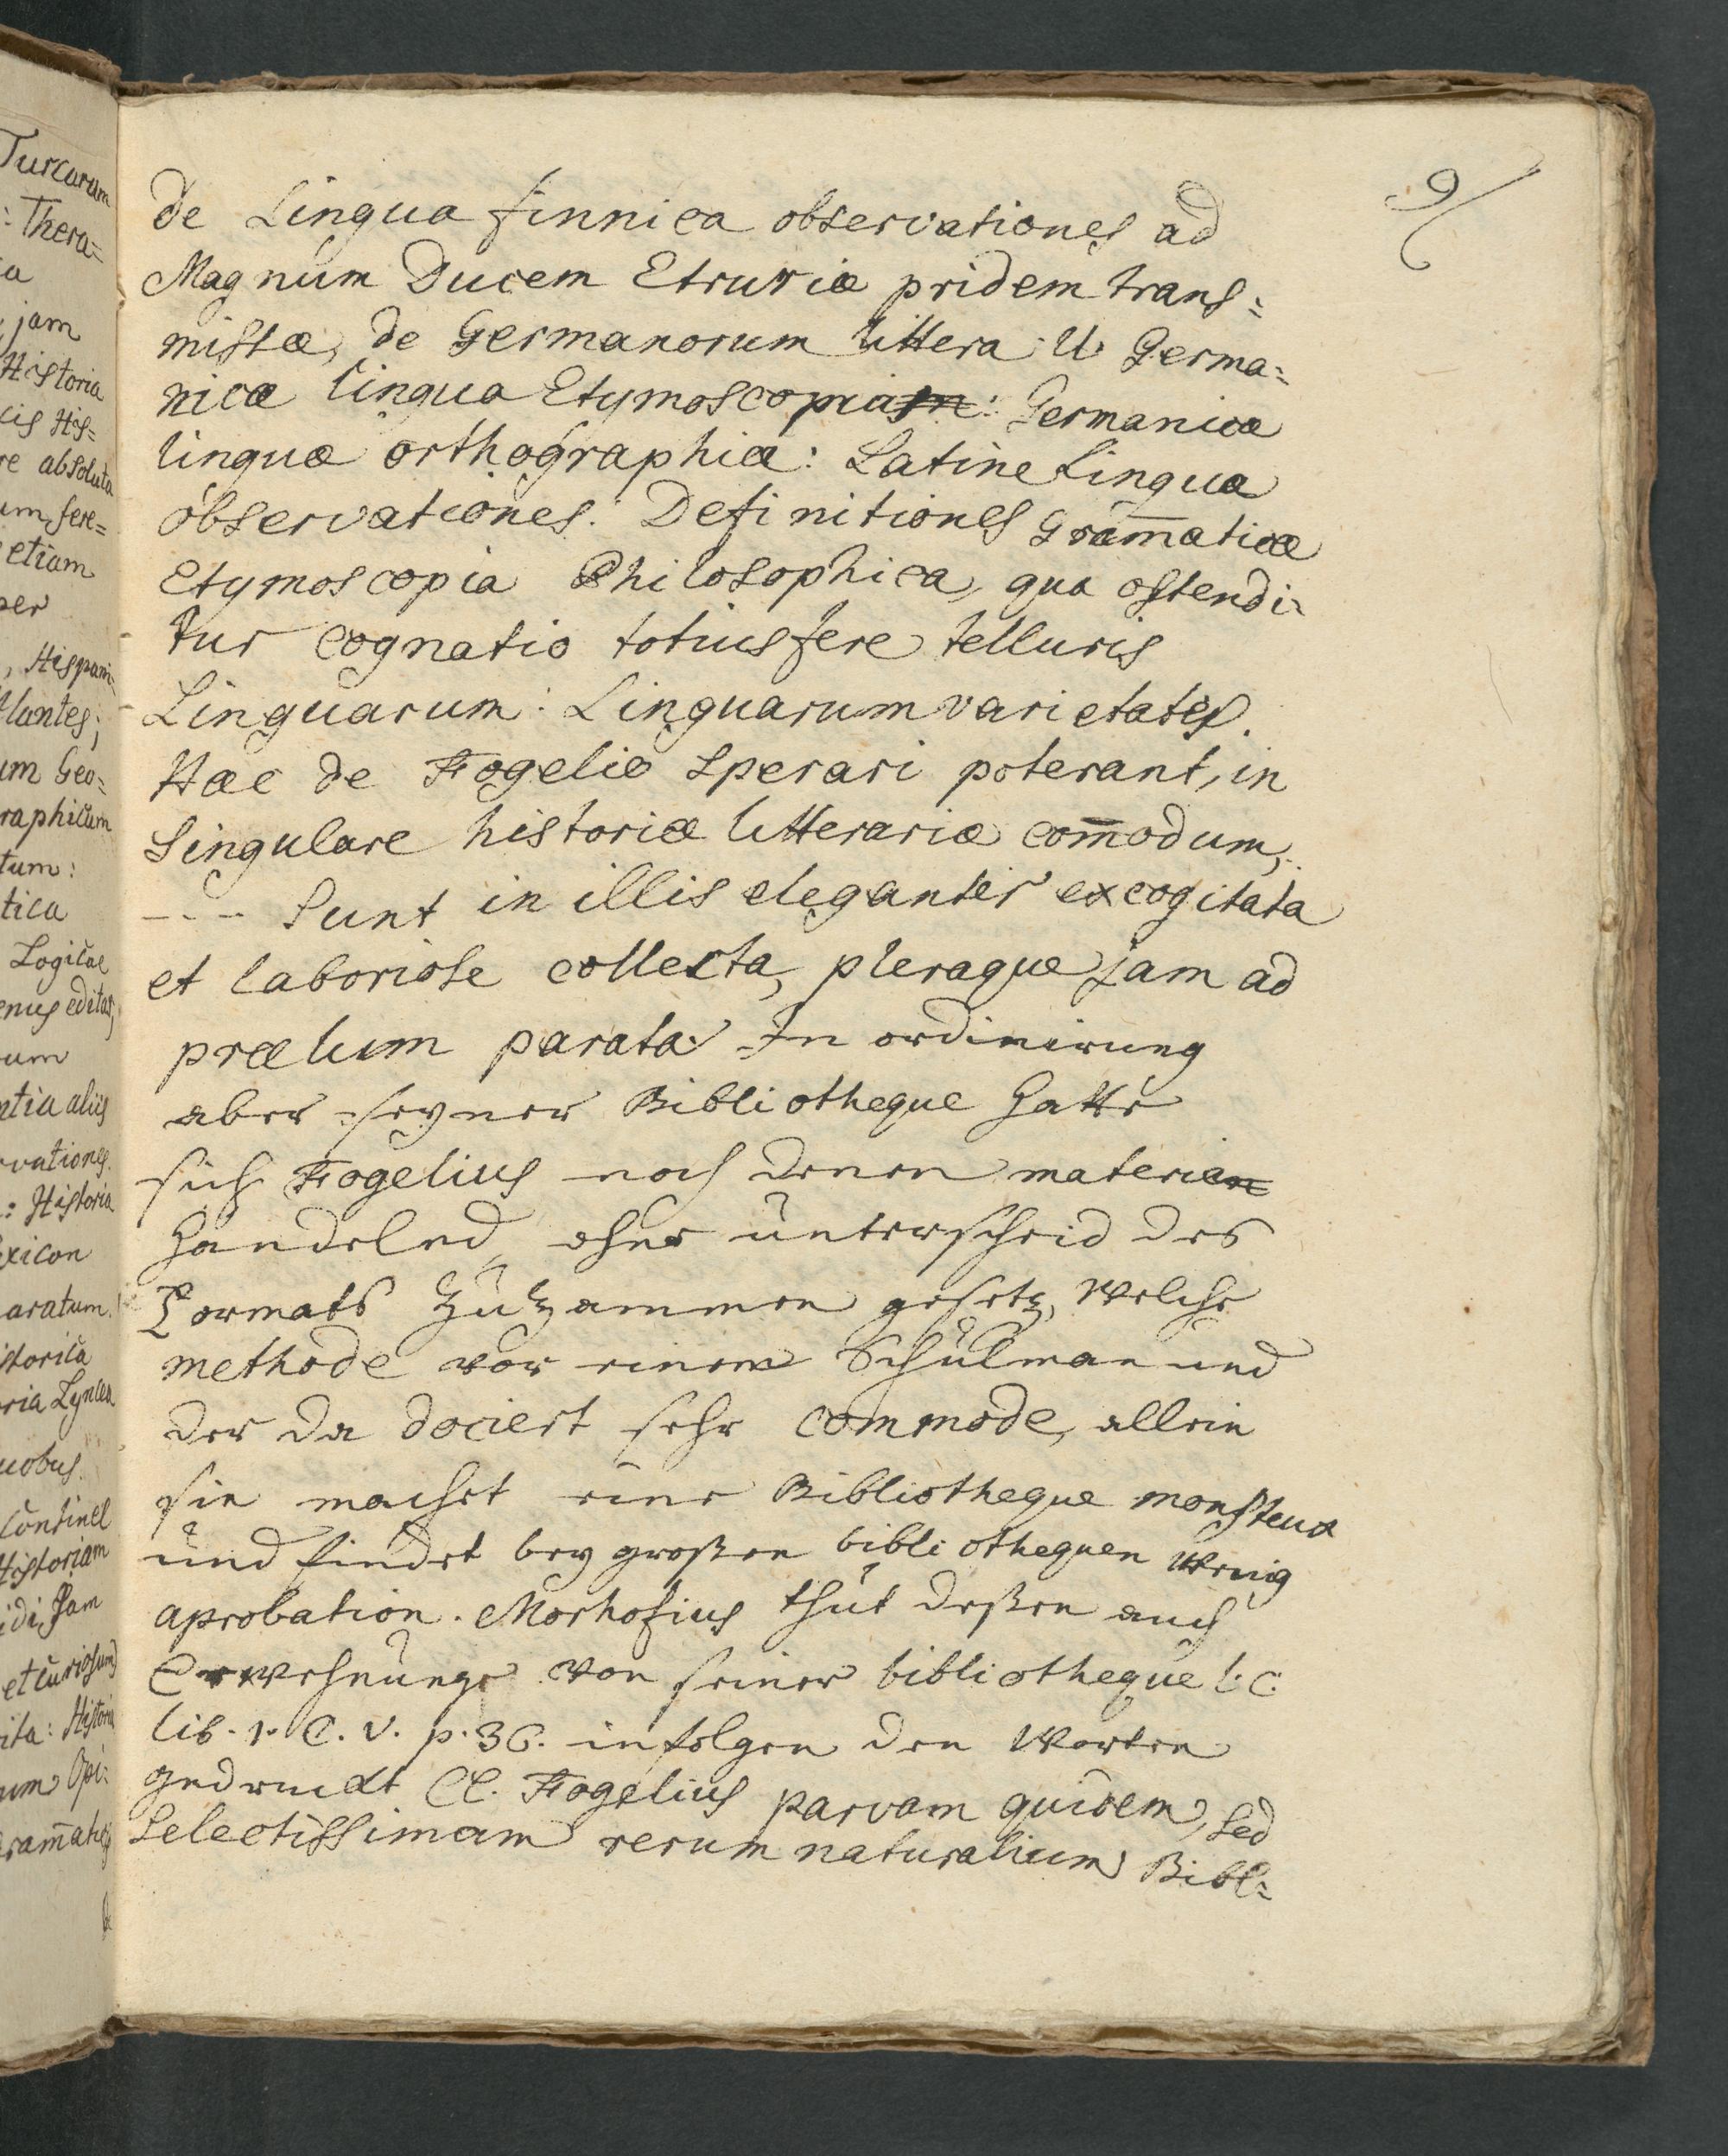 9
de Lingua finnica observationes ad
Magnum Ducem Etruriæ pridem trans=
missæ, de Germanorum littera U. Germa=
nicæ lingua Etymoscopia: Germanicæ
linguæ orthographia: Latine Lingua
observationes: Definitiones Gram̄aticæ
Etymoscopia Philosophica, qua ostendi=
tur cognatio totius fere telluris
Linguarum: Linguarum varietates.
Hæc de Fogelio sperari poterant, in
Singulare historiæ litterariæ com̄odum,
--- Sunt in illis eleganter excogitata
et laboriose collecta, pleraque jam ad
prælum parata. In ordinirung
aber seyner Bibliotheque hatte
sich Fogelius nach denen materien
handelnd, ohne unterscheid des
Formats zuzammen gesetz, welche
methode vor einem Schulman und
der da dociert sehr commode, allein
sie machet eine Bibliotheque
und findet bey großen bibliothequen wenig
aprobation. Morhofius thut deßen auch
Erwehnunge von seiner bibliotheque l. c.
lib. 1. C. V. p. 36. in folgen den Worten
gedruckt Cl. Fogelius parvam quidem, sed
Selectissimam rerum naturalium Bibl=
Turcarum
: Thera=
jam
Historia
cis His=
re absoluta
um fere=
etiam
per
, Hispani=
Plantes;
um Geo=
raphicum
tum:
tica
Logicæ
enus editas,
um
ntia aliis
rvationes.
: Historia
exicon
aratum.
istorica
oria Lyncea
Continet
Historiam
idi, Jam
et curiosum
ita: Historia
um Opi=